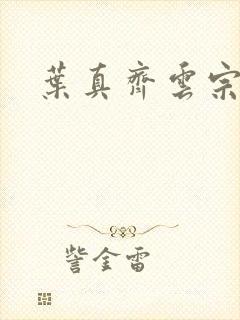 葉真齊雲宗
訾金雷